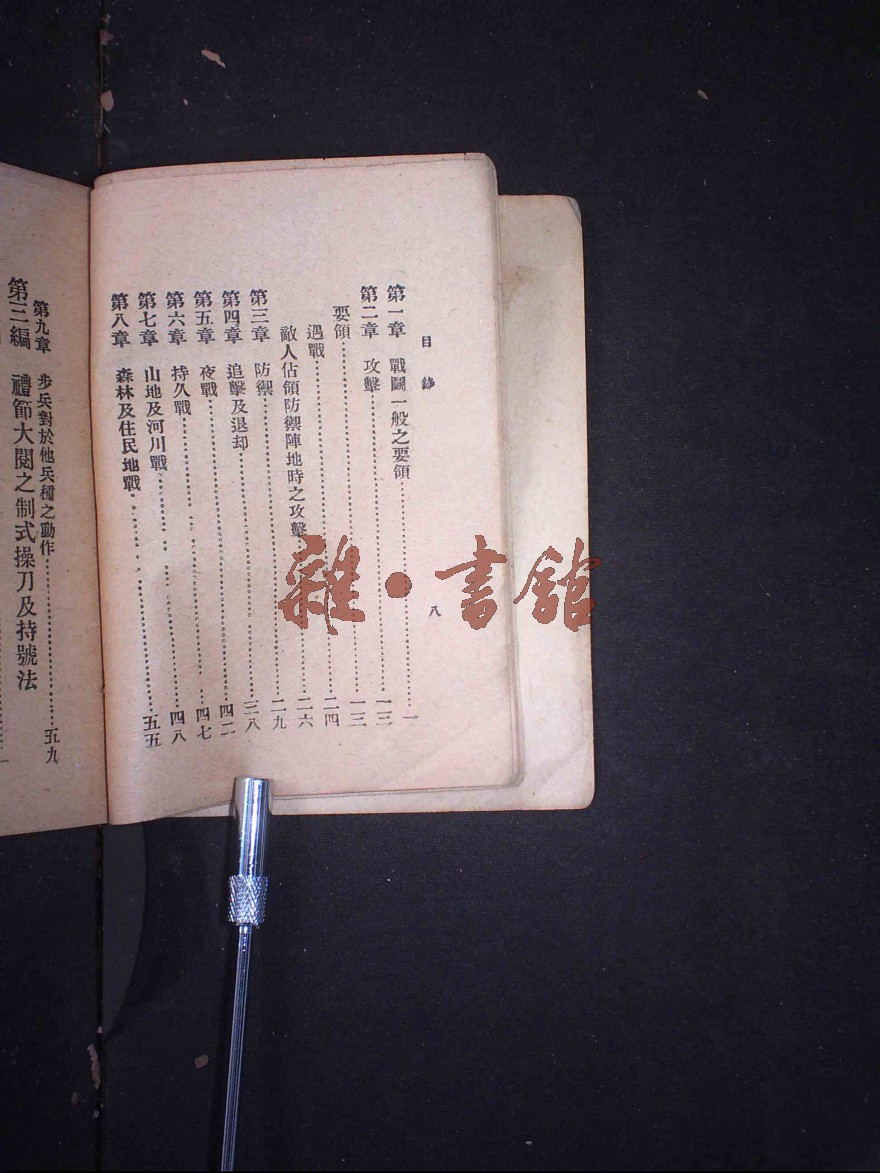 目錄
八
第一章 戰鬪一般之要領……………一
第二章 攻擊……………一三
要領……………一三
遇戰……………二四
敵人佔領防禦陣地時之攻擊……………二六
第三章 防禦……………二九
第四章 追擊及退却……………三八
第五章 夜戰……………四二
第六章 持久戰……………四七
第七章 山地及河川戰……………四八
第八章 森林及住民地戰……………五五
第九章 步兵對於他兵種之動作……………五九
第三編 禮節大閱之制式操刀及持號法
雜·書館